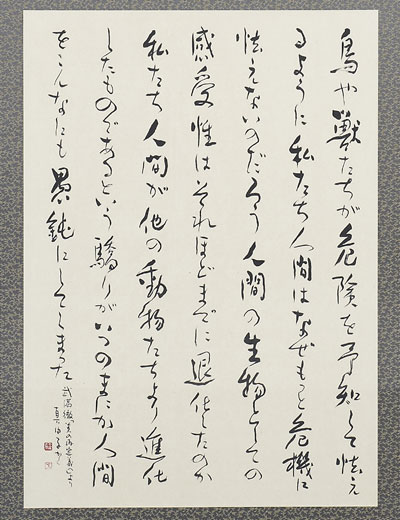 鳥や獣たちが危険を予知して怯え
るように私たち人間はなぜもっと危機に
怯えないのだろう人間の生物としての
感受性はそれほどまでに退化したのか
私たち人間が他の動物たちより進化
したものであるという驕りがいつのまにか人間
をこんなにも愚鈍にしてしまった
武満徹